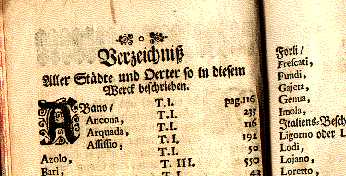 Verzeichniß
Aller Städte und Oerter so in diesem
Werck beschrieben.
ABano/ T. I. pag. 116
Ancona, T. I. 235
Arquada, T. I. 116
Assisio, T. I. 192
Azolo, T. I. 50
Bari, T. III. 550
T. I. 43
Forli/
Frescati,
Fundi,
Gajeta,
Genua,
Imola,
Italiens-Besch
Ligorno oder L
Lodi,
Lojano,
Loretto,